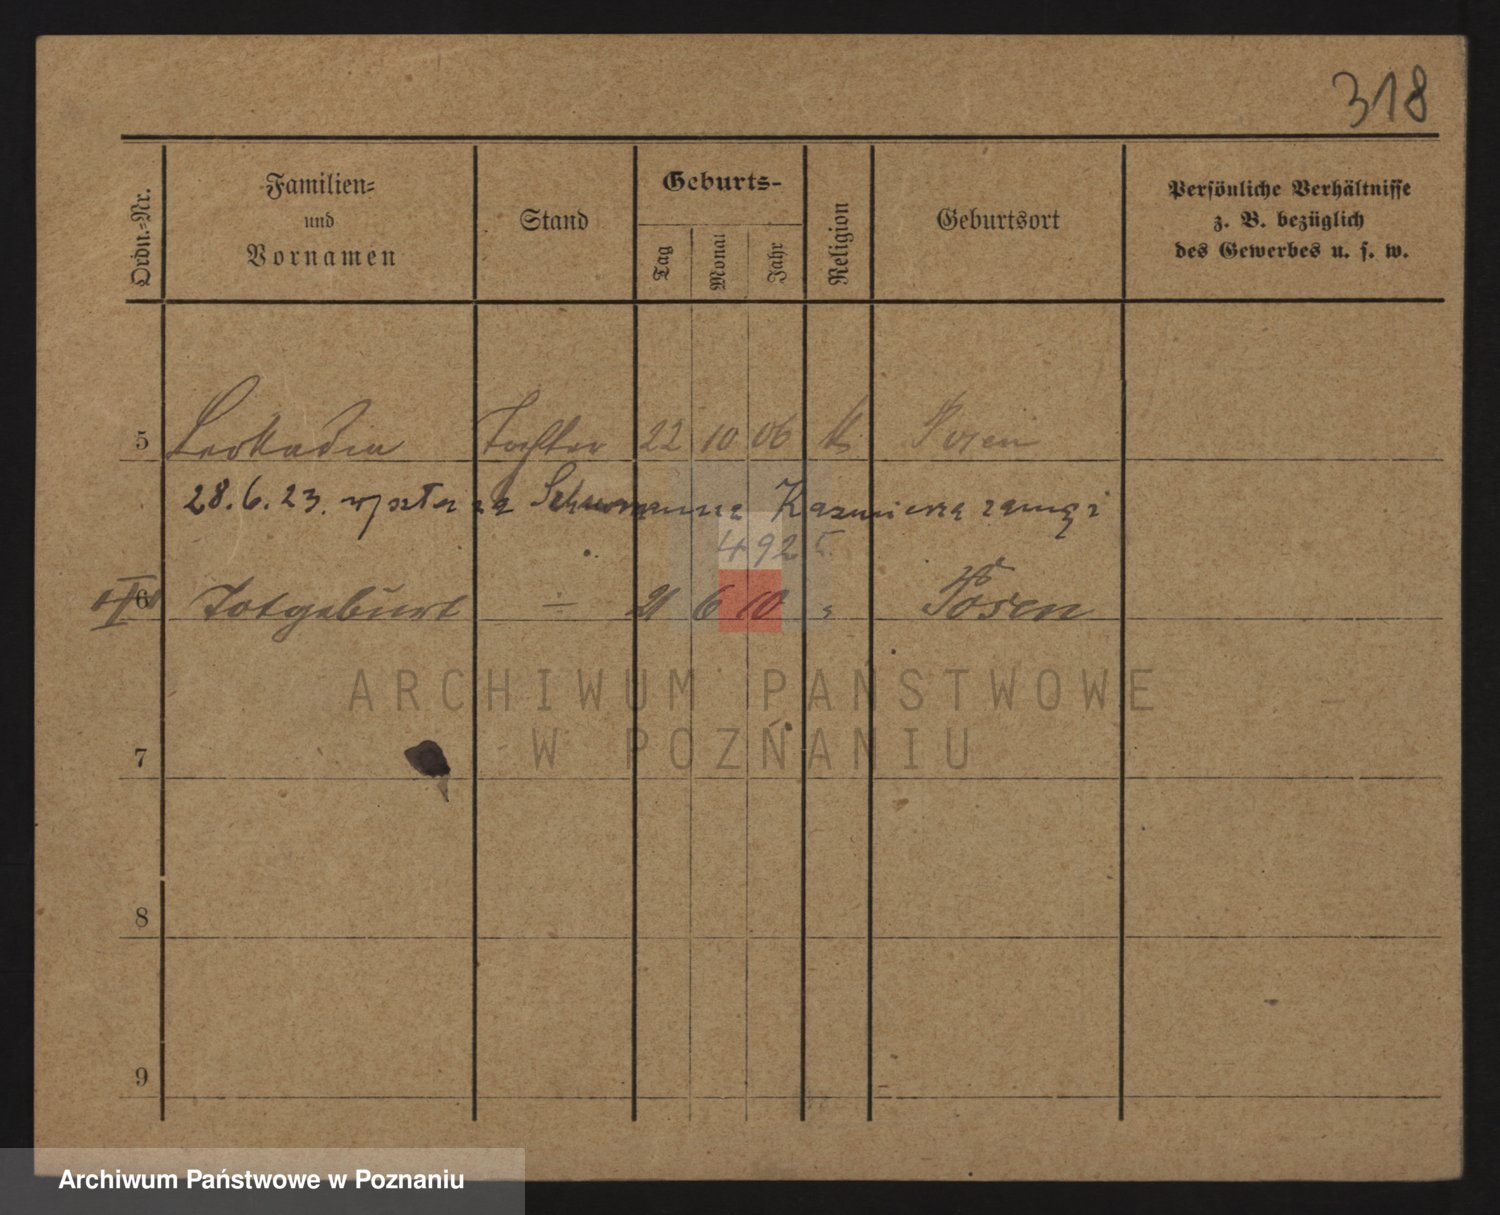 318
Ordn.-Nr.
Familien-
und
Vornamen
Stand
Geburts-
Tag
Monat
Jahr
Religion
Geburtsort
Persönliche Verhältnisse
z. B. bezüglich
des Gewerbes u. s. w.
5 Leokadia Tochter 22 10 06 k Posen
28.6.23. wyszła za Schumanna Kazimierza zamąż
4925
6 Totgeburt - 21 6 10 Posen
ARCHIWUM PAŃSTWOWE
W POZNANIU
7
8
9
Archiwum Państwowe w Poznaniu